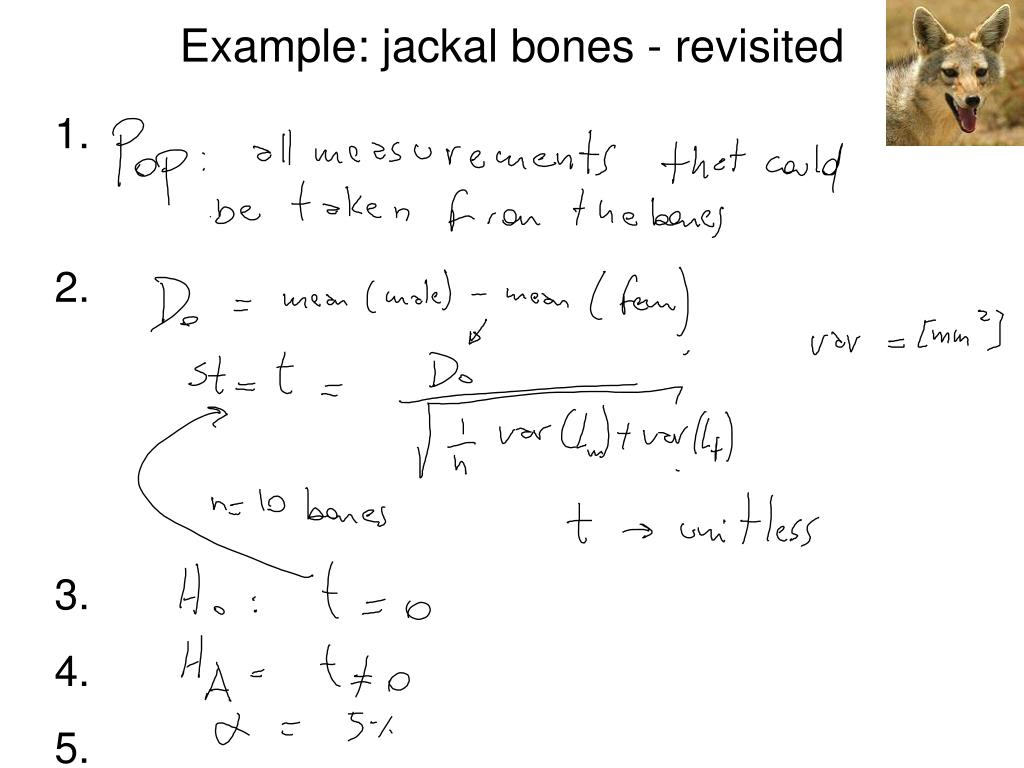 Example: jackal bones - revisited
1. Pop: all measurements that could
be taken from the bones
2. D₀ = mean (male) - mean (fem)
var = [mm²]
st = t = D₀ / √(1/n var(Lm) + var(Lf))
n = 10 bones
t → unitless
3. H₀: t = 0
4. H_A = t ≠ 0
α = 5%
5.